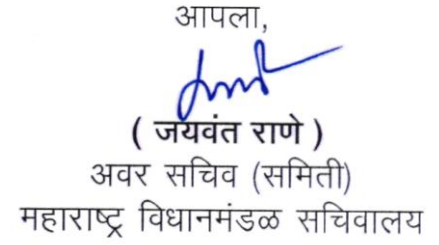 आपला,
( जयवंत राणे )
अवर सचिव (समिती)
महाराष्ट्र विधानमंडळ सचिवालय